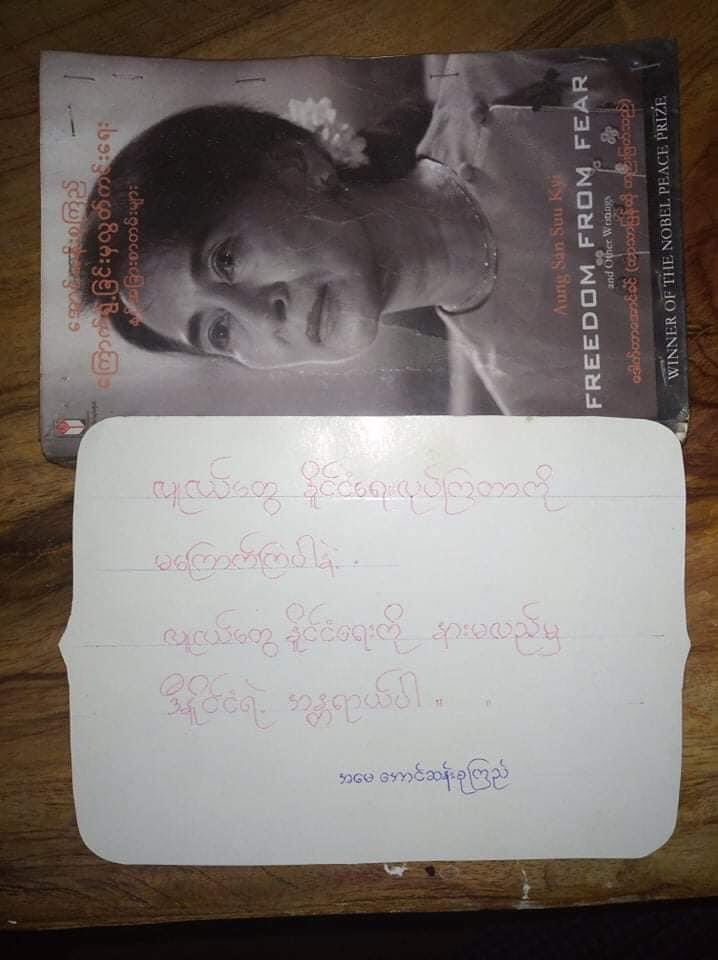 အောင်ဆန်းစုကြည်
ကြောက်ရွံ့ခြင်းမှလွတ်ကင်းရေး
နှင့် အခြားစာတမ်းများ
Aung San Suu Kyi
FREEDOM FROM FEAR
and Other Writings
WINNER OF THE NOBEL PEACE PRIZE
လူငယ်တွေ နိုင်ငံရေးလုပ်ကြတာကို
မကြောက်ကြပါနဲ့.
လူငယ်တွေ နိုင်ငံရေးကို နားမလည်မှ
ဒီနိုင်ငံရဲ့ အန္တရာယ်ပါ ။
အမေ အောင်ဆန်းစုကြည်